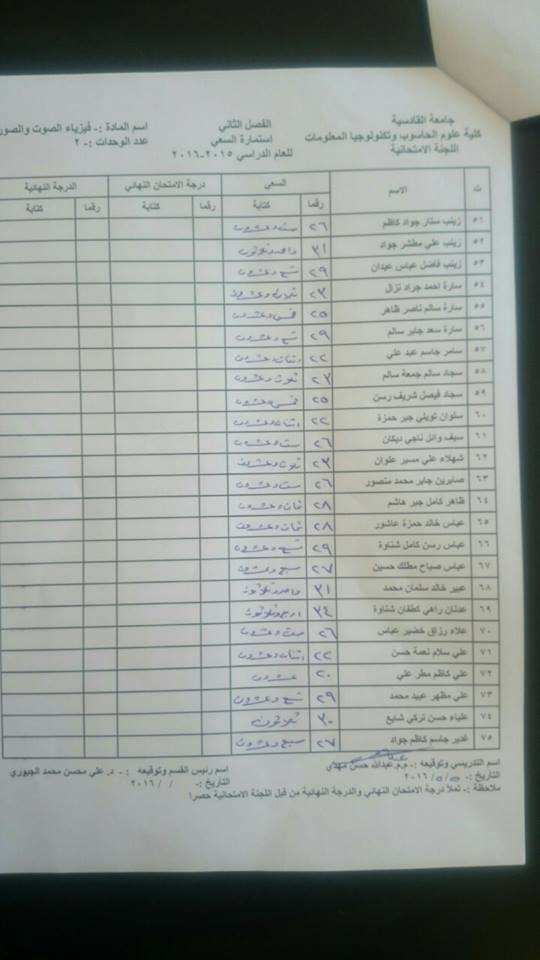 جامعة القادسية
كلية علوم الحاسوب وتكنولوجيا المعلومات
اللجنة الامتحانية
الفصل الثاني
استمارة السعي
للعام الدراسي ٢٠١٥-٢٠١٦
اسم المادة :- فيزياء الصوت والصور
عدد الوحدات :- ٢
ت الاسم السعي درجة الامتحان النهائي الدرجة النهائية
رقما كتابة رقما كتابة رقما كتابة
٥١ زينب ستار جواد كاظم ٢٦ ست وعشرون
٥٢ زينب علي مطشر جواد ٣١ واحد وثلاثون
٥٣ زينب فاضل عباس عيدان ٢٩ تسع وعشرون
٥٤ سارة احمد جراد نزال ٢٣ ثلاث وعشرون
٥٥ سارة سالم ناصر ظاهر ٢٥ خمس وعشرون
٥٦ سارة سعد جابر سالم ٢٩ تسع وعشرون
٥٧ سامر جاسم عبد علي ٢٢ اثنان وعشرون
٥٨ سجاد سالم جمعة سالم ٢٣ ثلاث وعشرون
٥٩ سجاد فيصل شريف رسن ٢٥ خمس وعشرون
٦٠ سلوان تويلي جبر حمزة ٢٢ اثنان وعشرون
٦١ سيف وائل ناجي ديكان ٢٦ ست وعشرون
٦٢ شهلاء علي مسير علوان ٢٣ ثلاث وعشرون
٦٣ صابرين جابر محمد منصور ٢٦ ست وعشرون
٦٤ ظاهر كامل جبر هاشم ٢٨ ثمان وعشرون
٦٥ عباس خالد حمزة عاشور ٢٨ ثمان وعشرون
٦٦ عباس رسن كامل شناوة ٢٩ تسع وعشرون
٦٧ عباس صباح مطلك حسين ٢٧ سبع وعشرون
٦٨ عبير خالد سلمان محمد ٣١ واحد وثلاثون
٦٩ عدنان راهي كطفان شناوة ٣٤ اربع وثلاثون
٧٠ علاء رزاق خضير عباس ٢٦ ست وعشرون
٧١ علي سلام نعمة حسن ٢٢ اثنان وعشرون
٧٢ علي كاظم مطر علي ٢٠ عشرون
٧٣ علي مظهر عبيد محمد ٢٩ تسع وعشرون
٧٤ علياء حسن تركي شايع ٣٠ ثلاثون
٧٥ غدير جاسم كاظم جواد ٢٧ سبع وعشرون
اسم التدريسي وتوقيعه :- م.م.عبدالله حسن مهدي
اسم رئيس القسم وتوقيعه :- د. علي محسن محمد الجبوري
التاريخ :- ٥/٥/ ٢٠١٦
التاريخ :- / / ٢٠١٦
ملاحظة :- تملأ درجة الامتحان النهائي والدرجة النهائية من قبل اللجنة الامتحانية حصرا